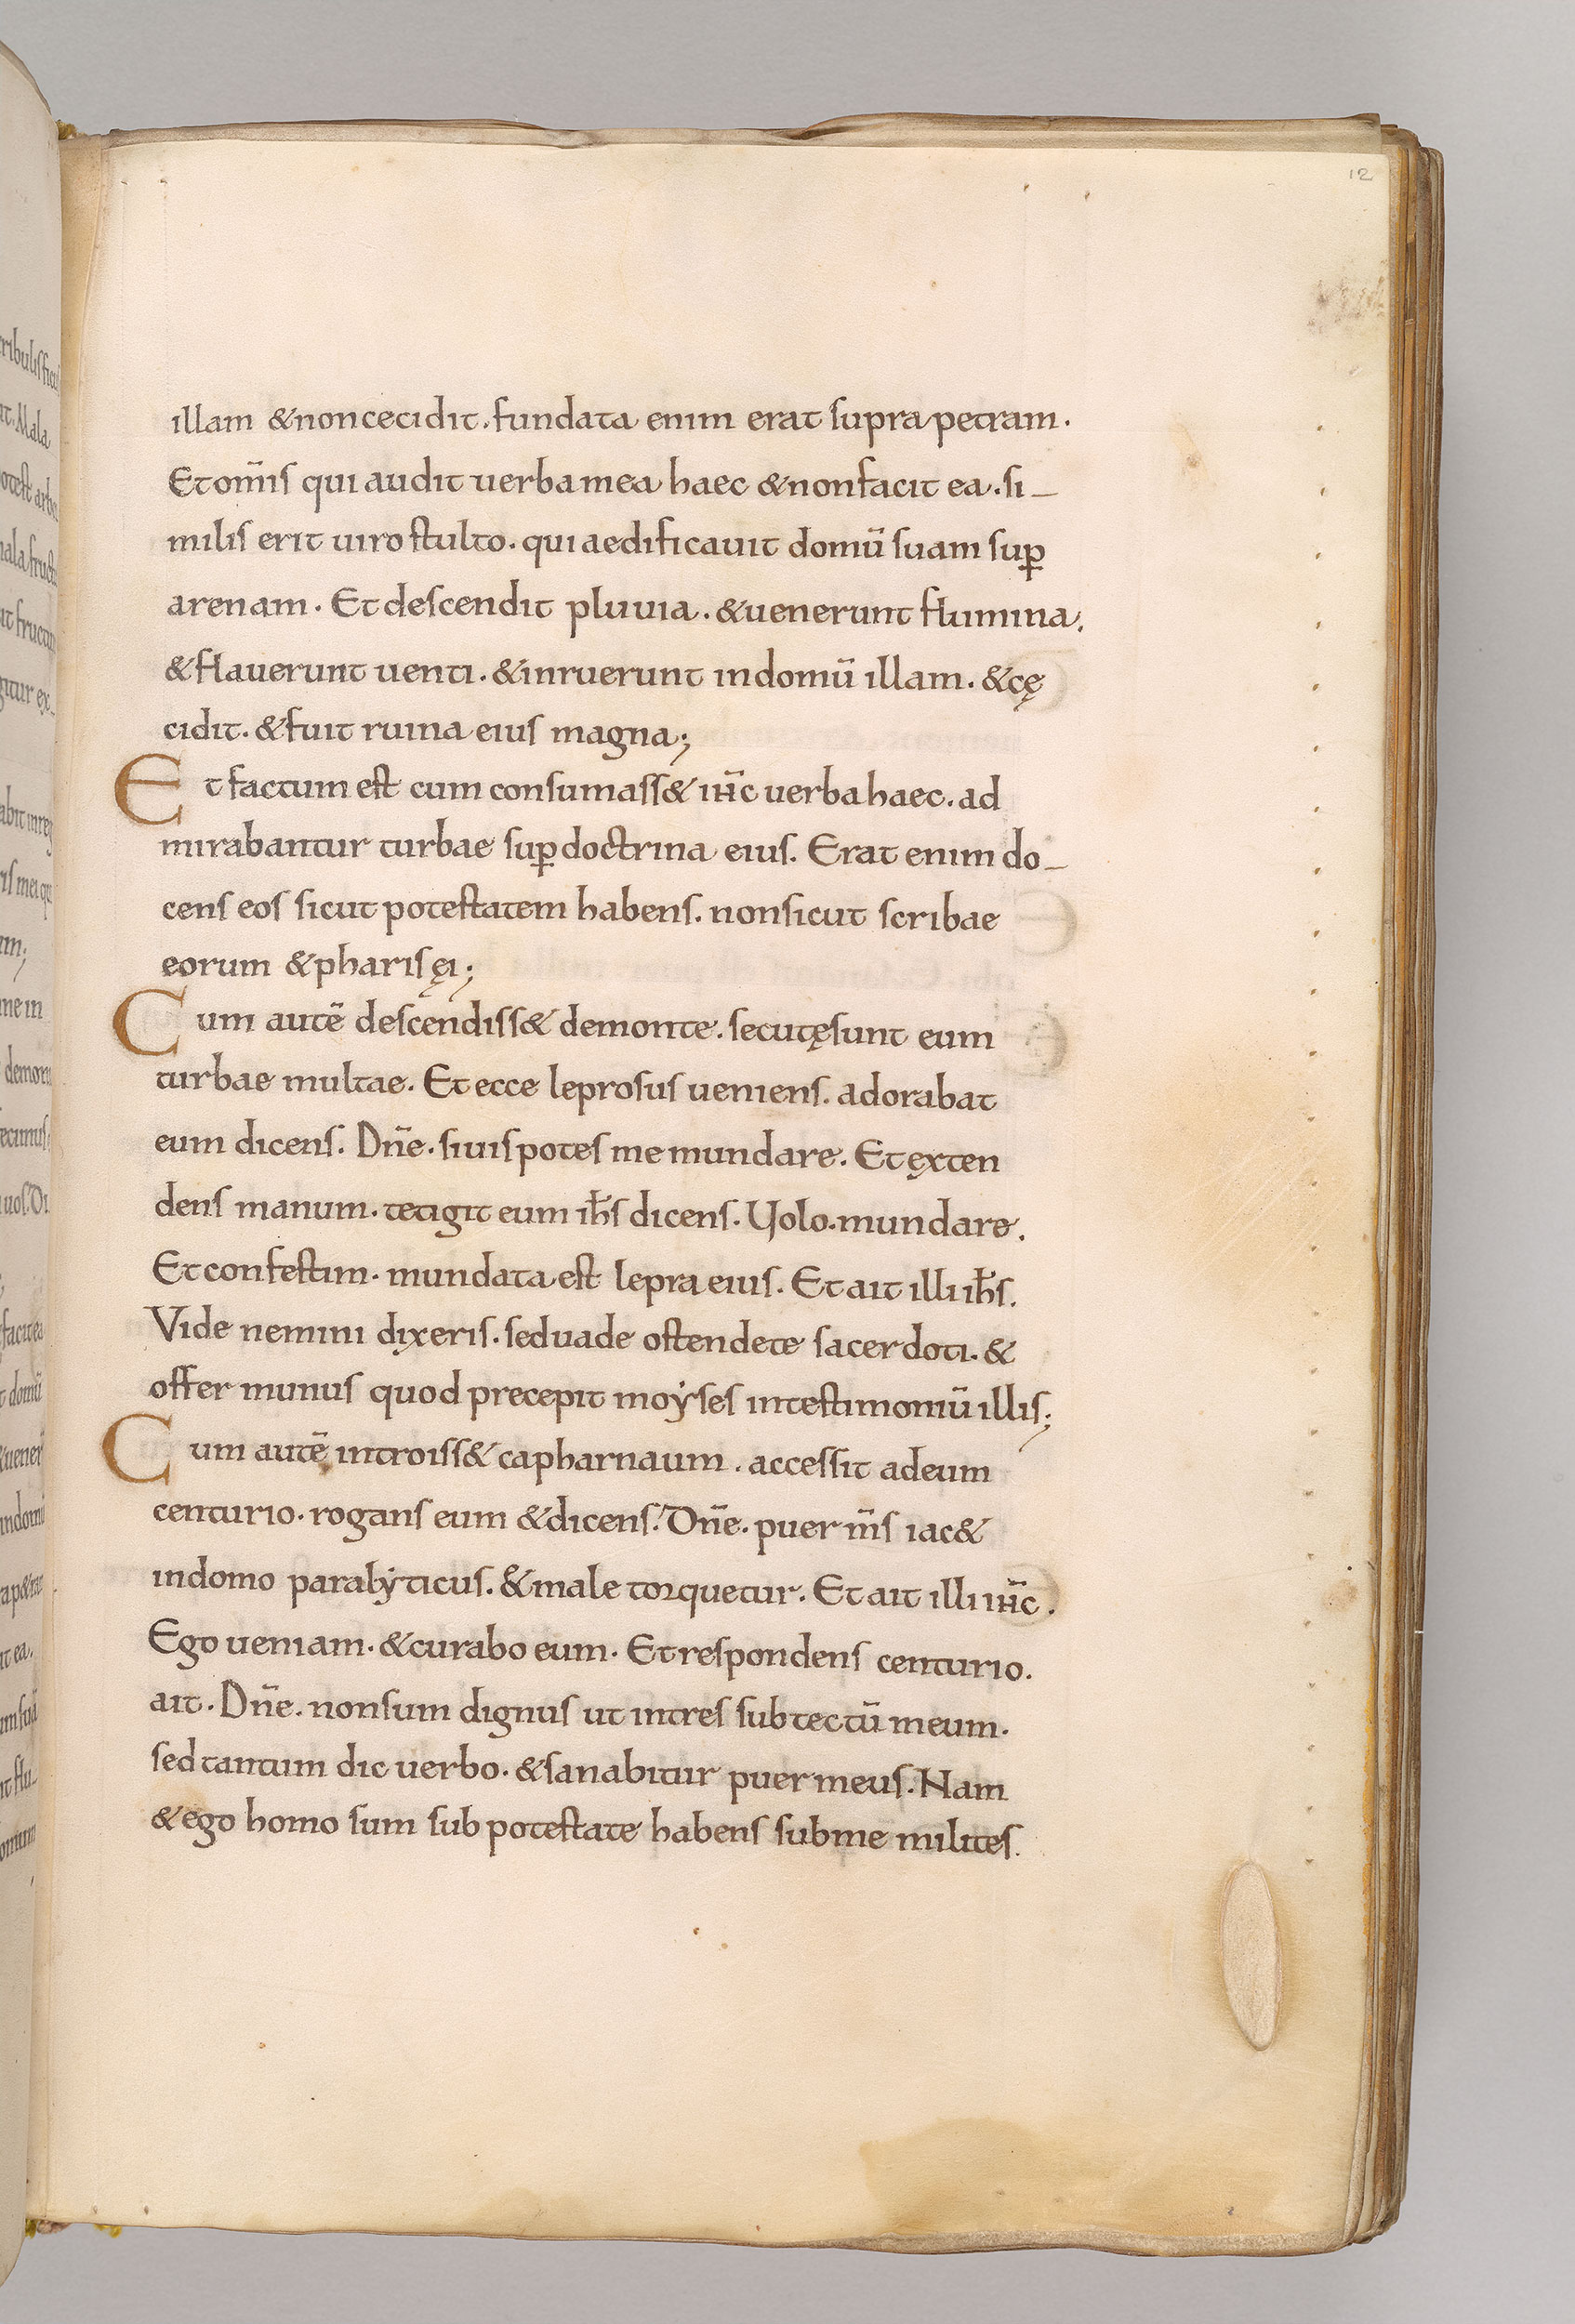 12
illam & non cecidit. fundata enim erat supra petram.
Et om̄is qui audit uerba mea haec & non facit ea. si_
milis erit uiro stulto. qui aedificauit domū suam sup̱
arenam. Et descendit pluuia. & uenerunt flumina.
& flauerunt uenti. & inruerunt in domū illam. & cę
cidit. & fuit ruina eius magna;
Et factum est cum consumass& iħc uerba haec. ad
mirabantur turbae sup̱ doctrina eius. Erat enim do_
cens eos sicut potestatem habens. non sicut scribae
eorum & pharisęi;
Cum autē descendiss& de monte. secutę sunt eum
turbae multae. Et ecce leprosus ueniens. adorabat
eum dicens. Dn̄e. si uis potes me mundare. Et ęxten
dens manum. tetigit eum ih̄s dicens. Uolo. mundare.
Et confestim. mundata est lepra eius. Et ait illi ih̄s.
Vide nemini dixeris. sed uade ostende te sacerdoti. &
offer munus quod precepit moẏses in testimoniū illis;
Cum autē introiss& capharnaum. accessit ad eum
centurio. rogans eum & dicens. Dn̄e. puer m̄s iac&
in domo paralẏticus. & male torquetur. Et ait illi iħc.
Ego ueniam. & curabo eum. Et respondens centurio.
ait. Dn̄e. non sum dignus ut intres sub tectū meum.
sed tantum dic uerbo. & sanabitur puer meus. Nam
& ego homo sum sub potestate habens sub me milites.